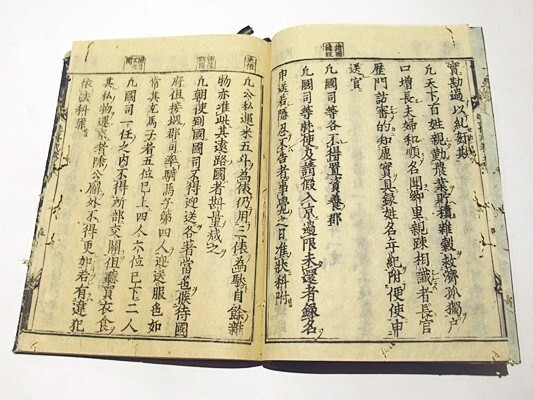 實勘過以糺奸
凡天下百姓親勤農業貯積雜穀救濟孤獨戸
口增長夫婦和順名聞鄉里親踈相識者長官
歷門訪審的知虛實具錄姓名年紀附便使申
送官
凡國司等各不
凡國司等使及請假入京過限未還者錄名
申送若隱忍不告者事覺之日准狀科附
凡公私運米五斗爲俵仍用三俵爲駄自餘雜
物亦准此其遠路國者斟量減之
凡朝使到國國司不得迎送各著當色候待國
府但接堺郡司率騎馬子弟四人迎送服色如
常其乳馬子者五位已上四人六位已下二人
凡國司一任之内不得所部交關但聽買衣食
其私物運京者除公廨外不得更加若有違犯
依法科罪